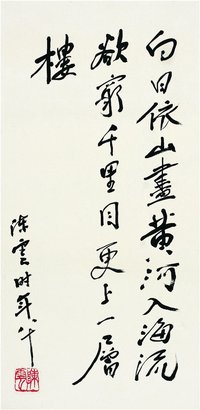 白日依山盡黄河入海流
欲窮千里目更上一層
樓
陈雲时年八十